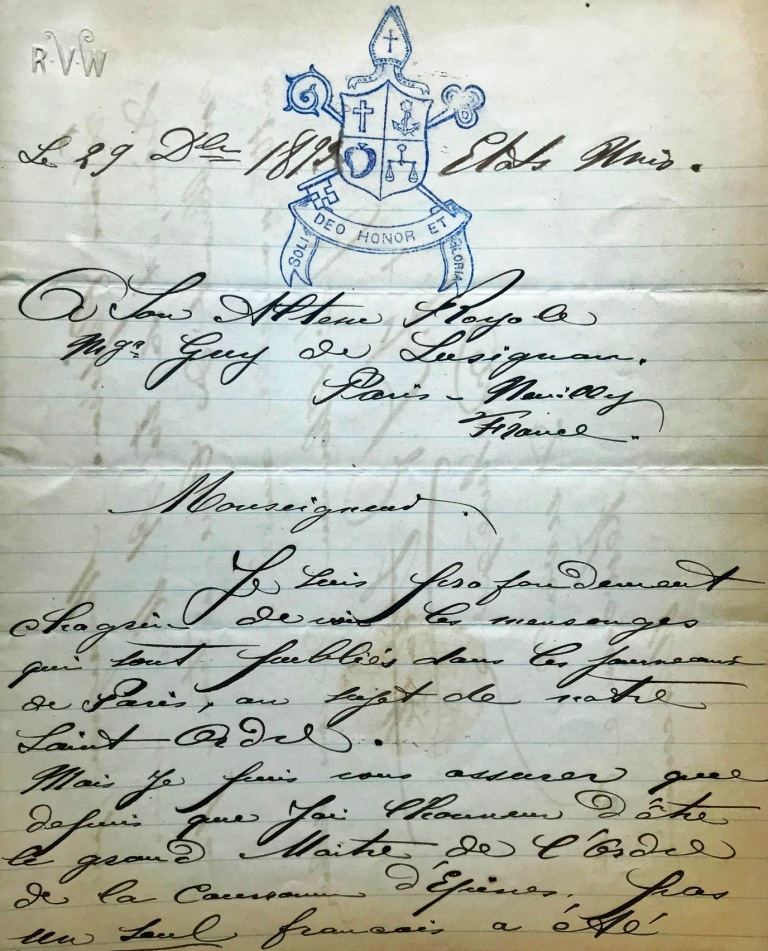 R·V·W
Le 29 Dbre 189 Etats Unis.
SOLI DEO HONOR ET GLORIA
A Son Altesse Royale
Mgr Guy de Lusignan.
Paris - Neuilly
France.
Monseigneur.
Je suis profondement
chagrin de voir les mensonges
qui sont publiés dans les journeaux
de Paris, au sujet de notre
Saint Ordre.
Mais je puis vous assurer que
depuis que J'ai l'honneur d'être
le grand Maitre de l'Ordre
de la Couronne d'Epines, pas
un seul francais a été